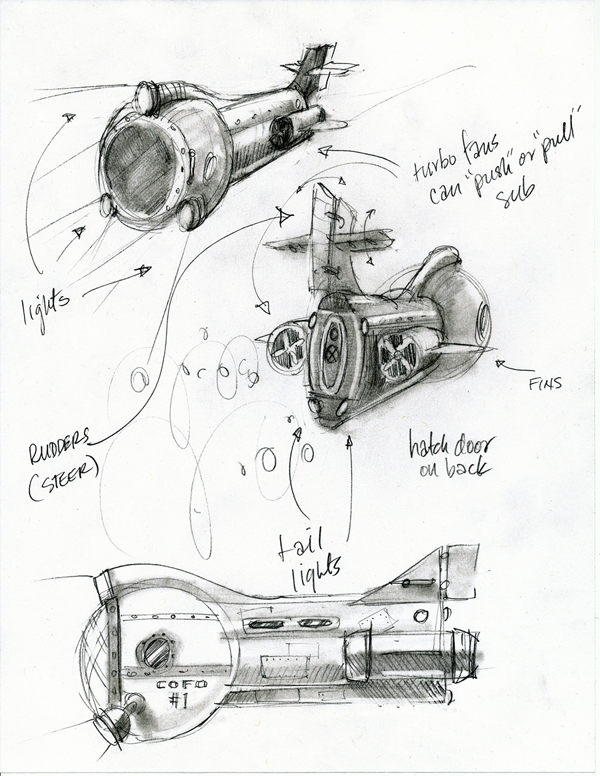 turbo fans
can "push" or "pull"
sub
lights
FINS
RUDDERS
(STEER)
hatch door
on back
tail
lights
COFD
#1